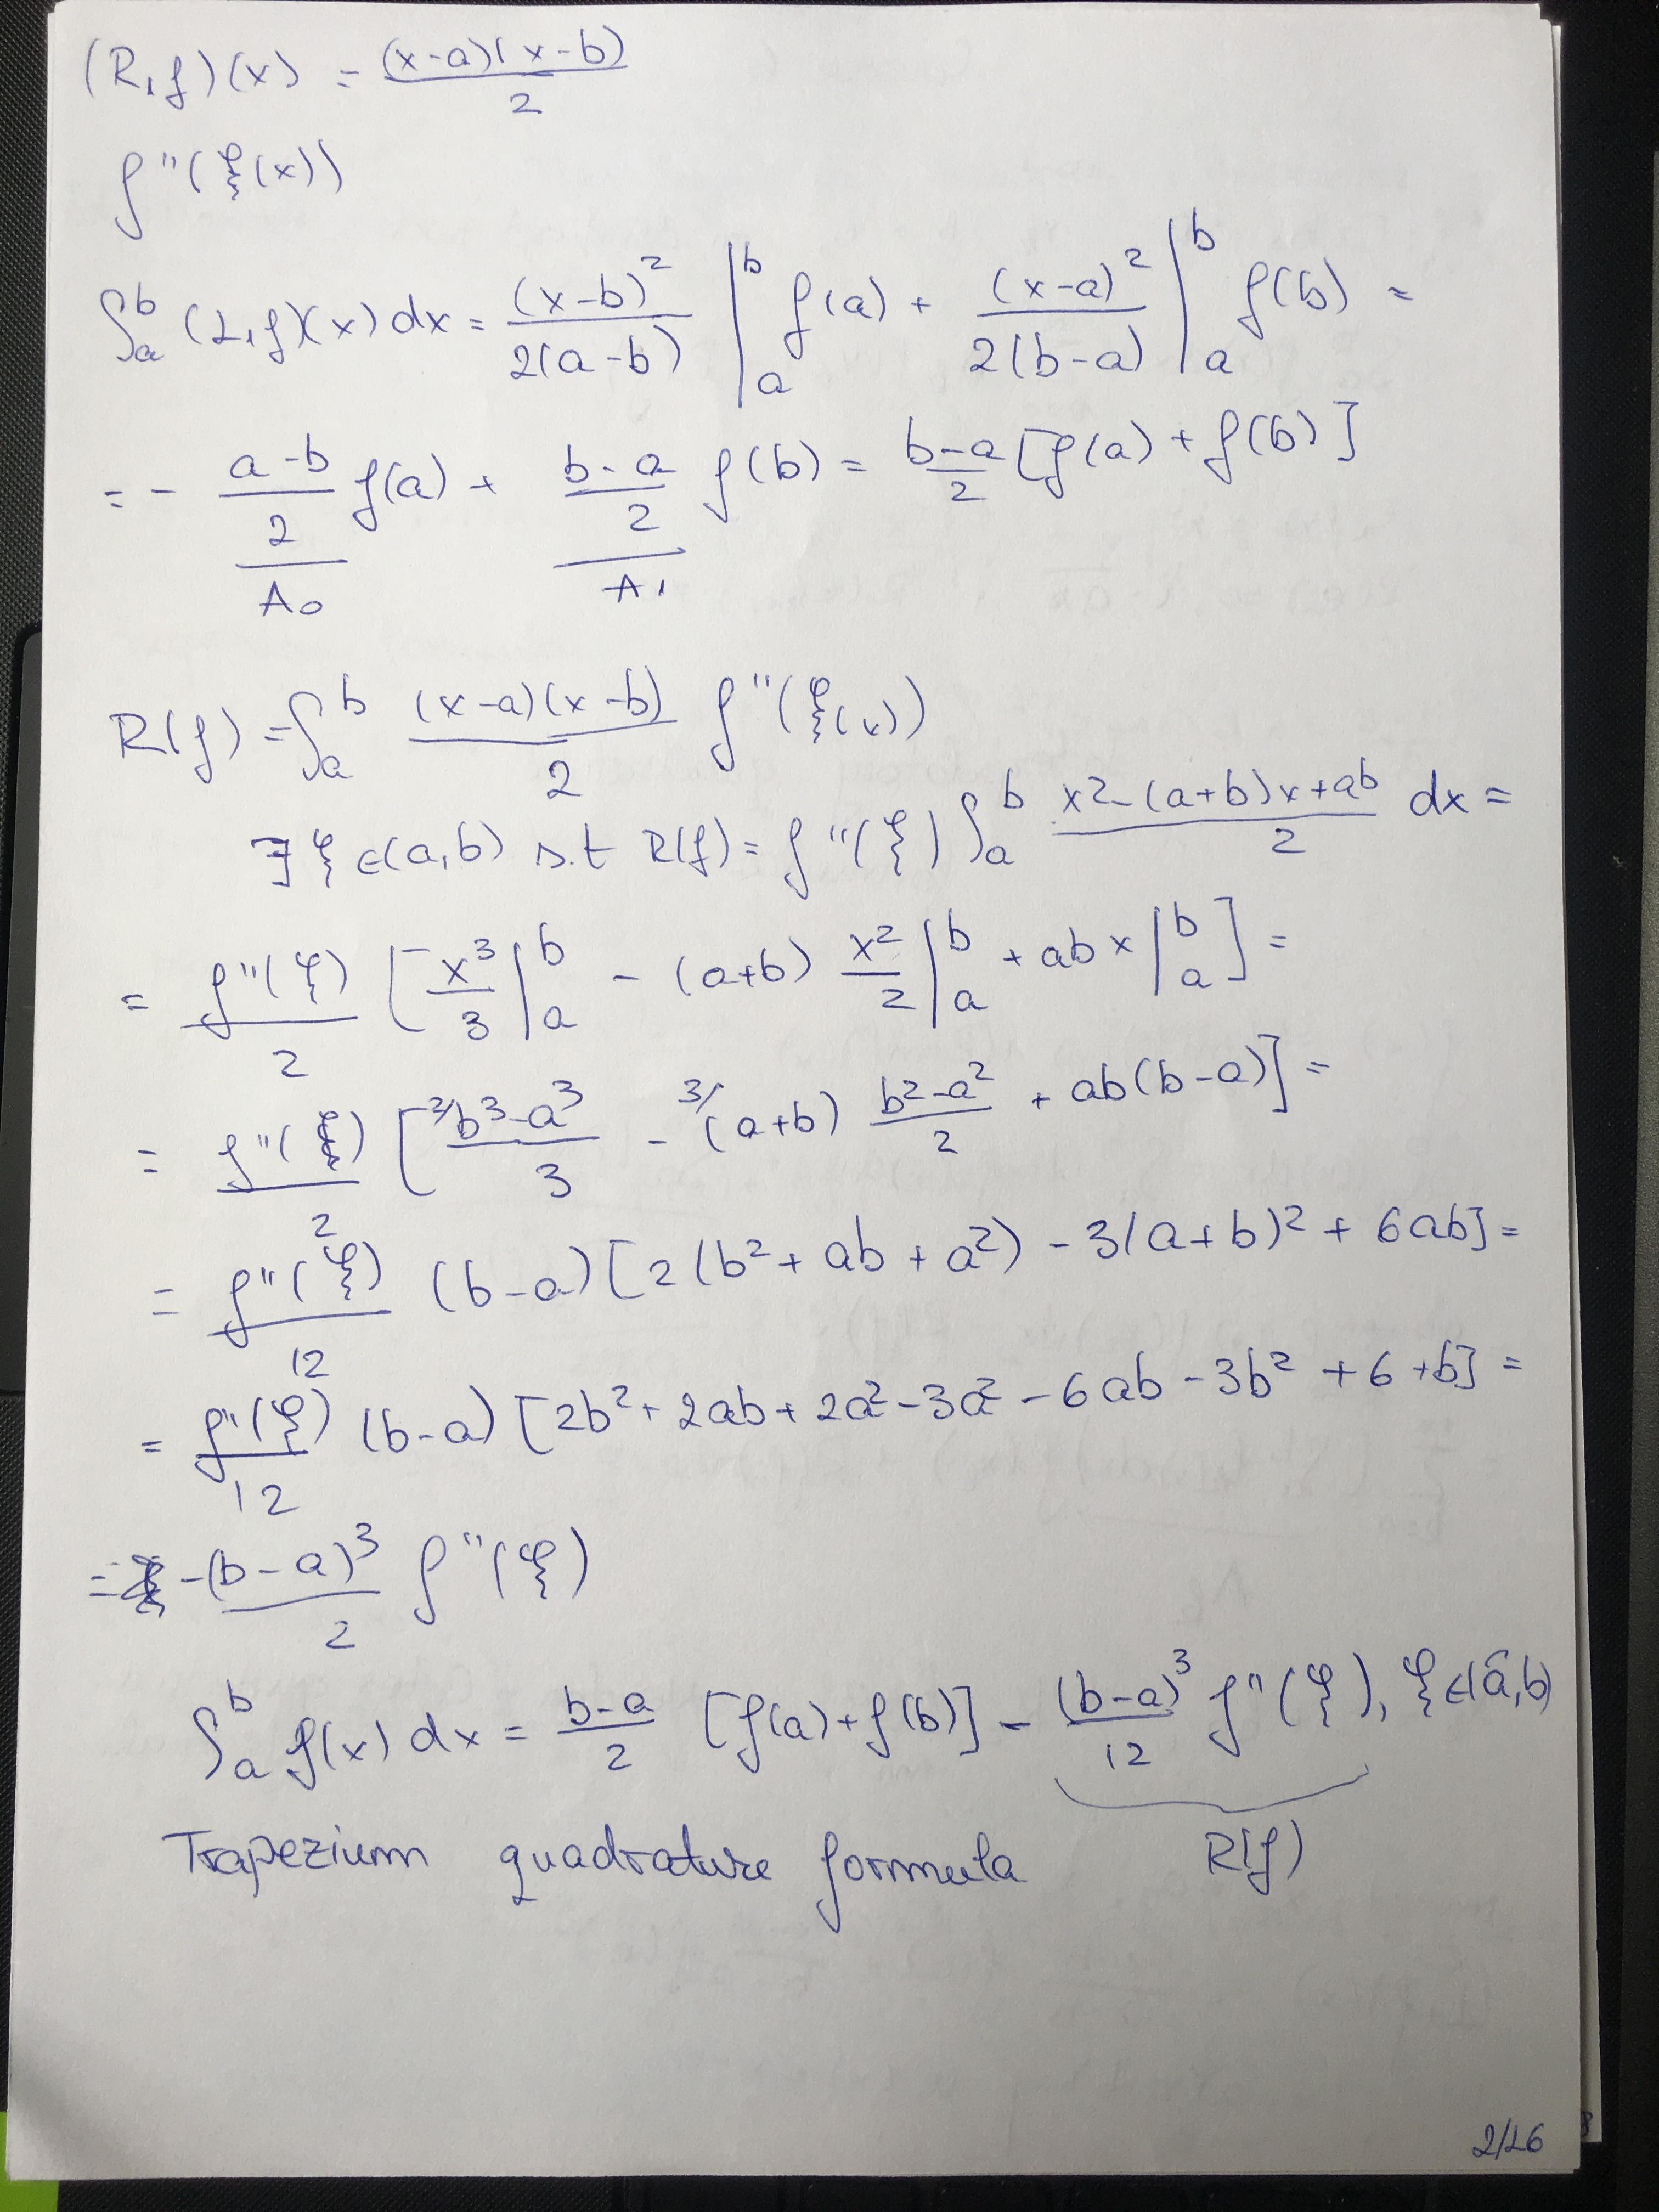 (R₁f)(x) = (x-a)(x-b)/2
f''(ξ(x))
∫ₐᵇ (L₁f)(x) dx = (x-b)²/2(a-b) |ₐᵇ f(a) + (x-a)²/2(b-a) |ₐᵇ f(b) =
= - (a-b)/2 f(a) + (b-a)/2 f(b) = (b-a)/2 [f(a) + f(b)]
A₀ A₁
R(f) = ∫ₐᵇ (x-a)(x-b)/2 f''(ξ(x))
∃ ξ ∈ (a,b) s.t R(f) = f''(ξ) ∫ₐᵇ (x²-(a+b)x+ab)/2 dx =
= f''(ξ)/2 [x³/3 |ₐᵇ - (a+b) x²/2 |ₐᵇ + ab x |ₐᵇ] =
= f''(ξ)/2 [²⁄ (b³-a³)/3 - ³⁄ (a+b) (b²-a²)/2 + ab(b-a)] =
= f''(ξ)/12 (b-a) [2(b²+ab+a²) - 3(a+b)² + 6ab] =
= f''(ξ)/12 (b-a) [2b²+2ab+2a²-3a²-6ab-3b²+6+b] =
= -(b-a)³/2 f''(ξ)
∫ₐᵇ f(x) dx = (b-a)/2 [f(a)+f(b)] - (b-a)³/12 f''(ξ), ξ ∈ (a,b)
Trapezium quadrature formula R(f)
2/26